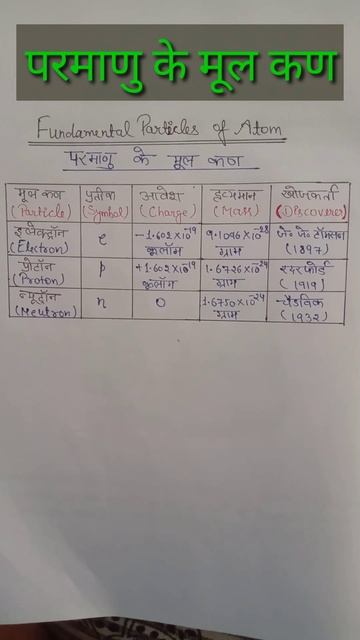 परमाणु के मूल कण
Fundamental Particles of Atom
परमाणु के मूल कण
मूल कण (Particle) प्रतीक (Symbol) आवेश (Charge) द्रव्यमान (Mass) खोजकर्ता (Discoverer)
इलेक्ट्रॉन (Electron) e -1.602×10^-19 कूलॉम 9.1096×10^-28 ग्राम जे० जे० टॉमसन (1897)
प्रोटॉन (Proton) p +1.602×10^-19 कूलॉम 1.6726×10^-24 ग्राम रदरफोर्ड (1919)
न्यूट्रॉन (Neutron) n 0 1.6750×10^-24 ग्राम चैडविक (1932)